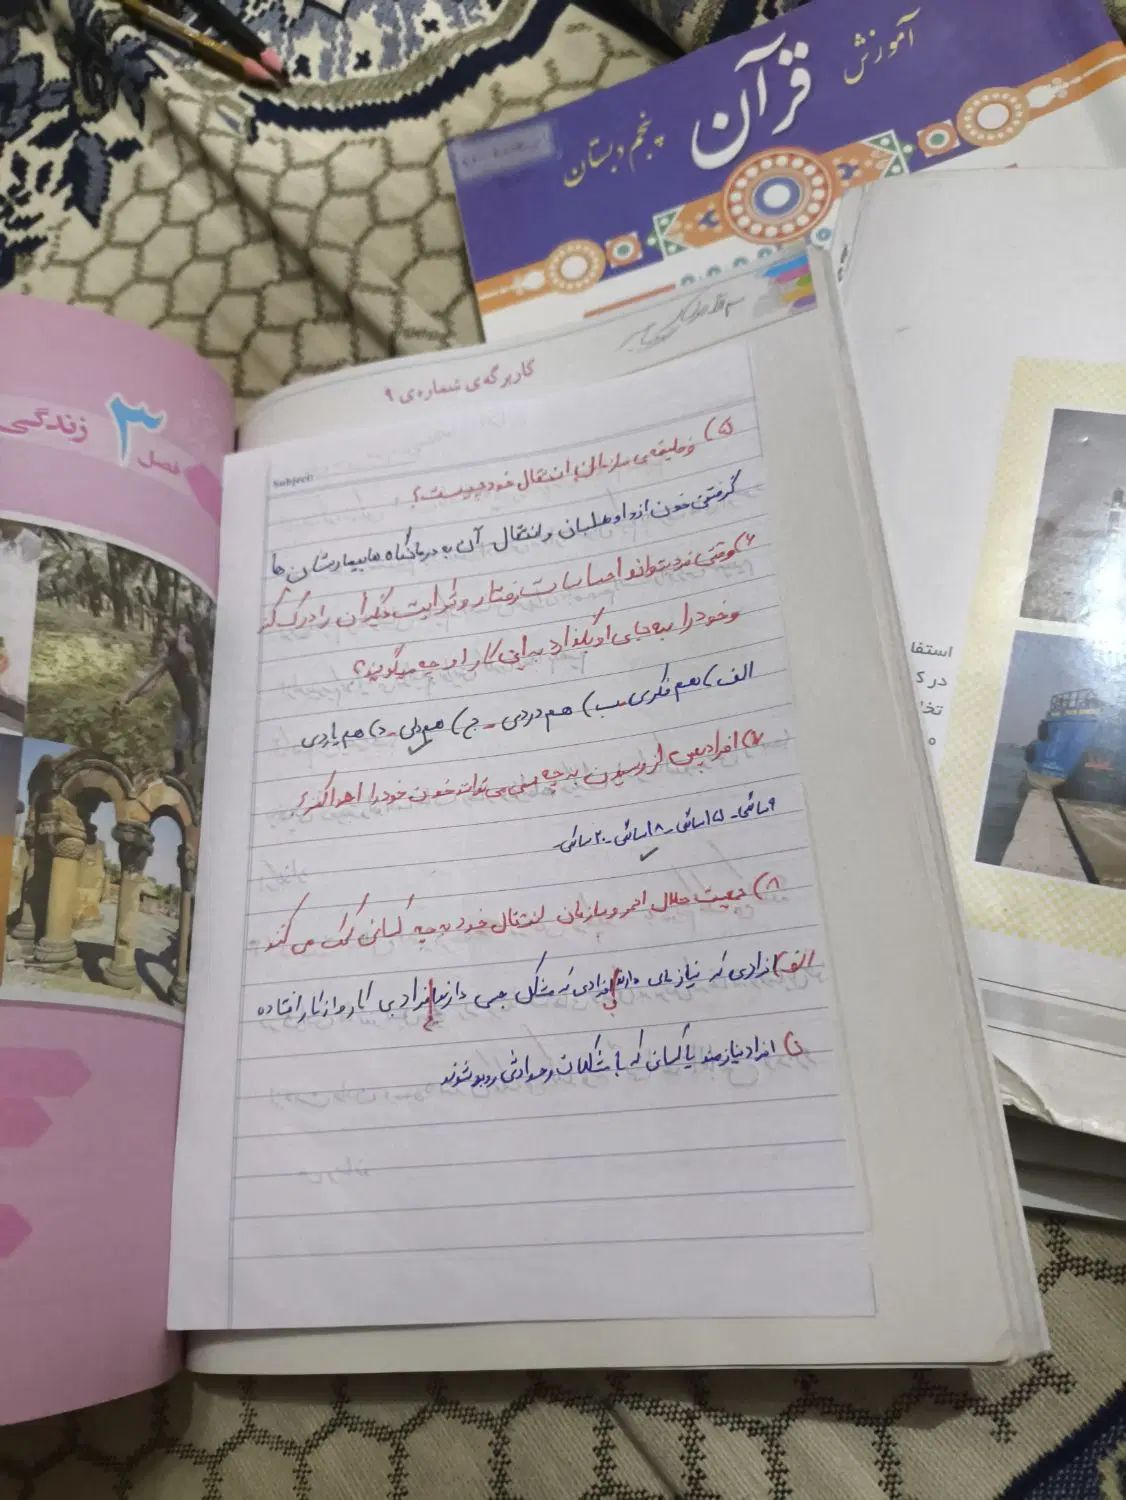 آموزش
قرآن
پنجم دبستان
کاربرگه‌ی شماره‌ی ۹
فصل ۳ زندگی
Subject:
۵) وظیفه‌ی سازمان انتقال خود چیست؟
گرفتن خون از داوطلبان و انتقال آن به درمانگاه ها بیمارستان ها
۶) وقتی فرد بتواند احساسات رفتار و شرایط دیگران را درک کند
و خود را به جای او بگذارد به این کار او چه میگویند؟
الف) هم فکری ب) هم دردی - ج) هم دلی - د) هم یاری
۷) افراد پس از رسیدن به چه سنی می تواند خون خود را اهدا کند؟
۹ سالگی - ۱۵ سالگی - ۱۸ سالگی - ۲۰ سالگی
۸) جمعیت هلال احمر و سازمان انتقال خود به چه کسانی کمک می کند
الف) افرادی که نیاز مالی دارند ب) افرادی که مشکل جسمی دارند ج) افراد بی کار و از کار افتاده
د) افراد نیازمند یا کسانی که با مشکلات و حوادثی روبرو شوند
استفا
در ک
تخا